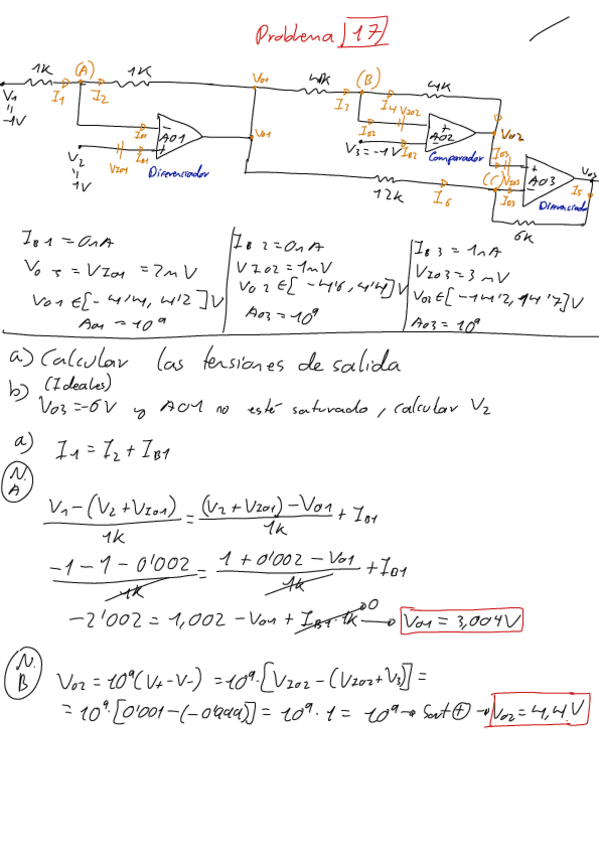 Problema 17
1K (A) 1K Vo1 4K (B) 4K
I1 I2 I3 I4 VIO2
V1 = -1V
IB1 AO1 Vo1 IB2 AO2 Vo2
V2 = 1V VIO1 IB1 Diferenciador
V3=-1V IB2 Comparador
12K I6 (C) VIO3 IB3 AO3 Vo3 I5
Diferenciador
6K
IB1 = 0nA
Vo s = VIO1 = 2mV
Vo1 ∈[-4'4, 4'2]V
AO1 = 10⁹
IB2=0nA
VIO2=1mV
Vo2∈[-4'6, 4'4]V
AO3=10⁹
IB3 = 1nA
VIO3=3mV
Vo3∈[-14'2, 14'7]V
AO3=10⁹
a) Calcular las tensiones de salida
(Ideales)
b) Vo3=-6V y AO1 no esté saturado, calcular V2
a) I1 = I2 + IB1
N.A
V1-(V2+VIO1)/1K = (V2+VIO1)-Vo1/1K + IB1
-1-1-0'002/1K = 1+0'002-Vo1/1K + IB1
-2'002 = 1,002 - Vo1 + IB1·1K → 0 → Vo1 = 3,004V
N.B
Vo2 = 10⁹(V+-V-) = 10⁹·[VIO2-(VIO2+V3)] =
= 10⁹·[0'001-(-0'999)] = 10⁹·1 = 10⁹ → Sat ⊕ → Vo2=4,4V